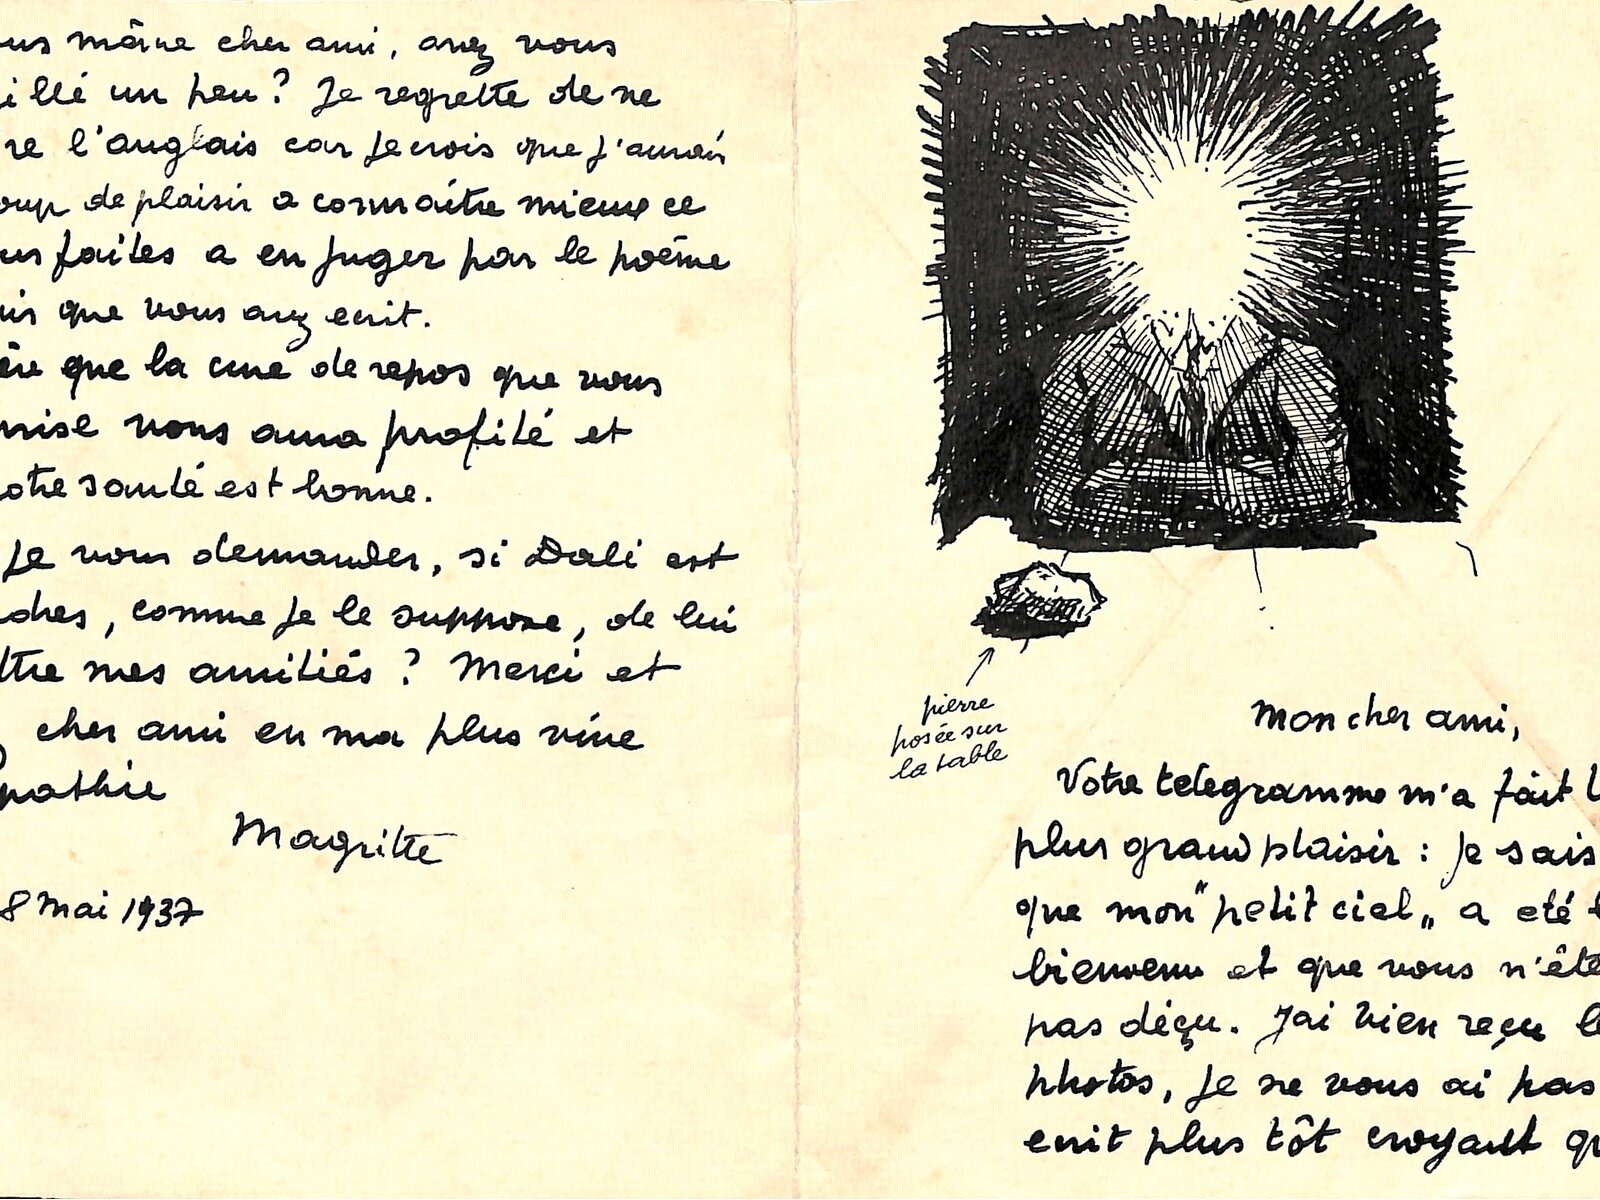 us même cher ami, avez vous
illé un peu? Je regrette de ne
re l'anglais car je crois que j'aurais
oup de plaisir a connaître mieux ce
us faites a en juger par le poème
ais que vous avez ecrit.
ère que la cure de repos que vous
prise vous aura profité et
otre santé est bonne.
je vous demander, si Dali est
dres, comme je le suppose, de lui
ttre mes amitiés? Merci et
cher ami en ma plus vive
pathie
Magritte
8 Mai 1937
pierre
posée sur
la table
Mon cher ami,
Votre telegramme m'a fait l
plus grand plaisir: je sais
que mon "petit ciel„ a eté
bienvenu et que vous n'ête
pas déçu. J'ai bien reçu le
photos, je ne vous ai pas
ecrit plus tôt croyant qu